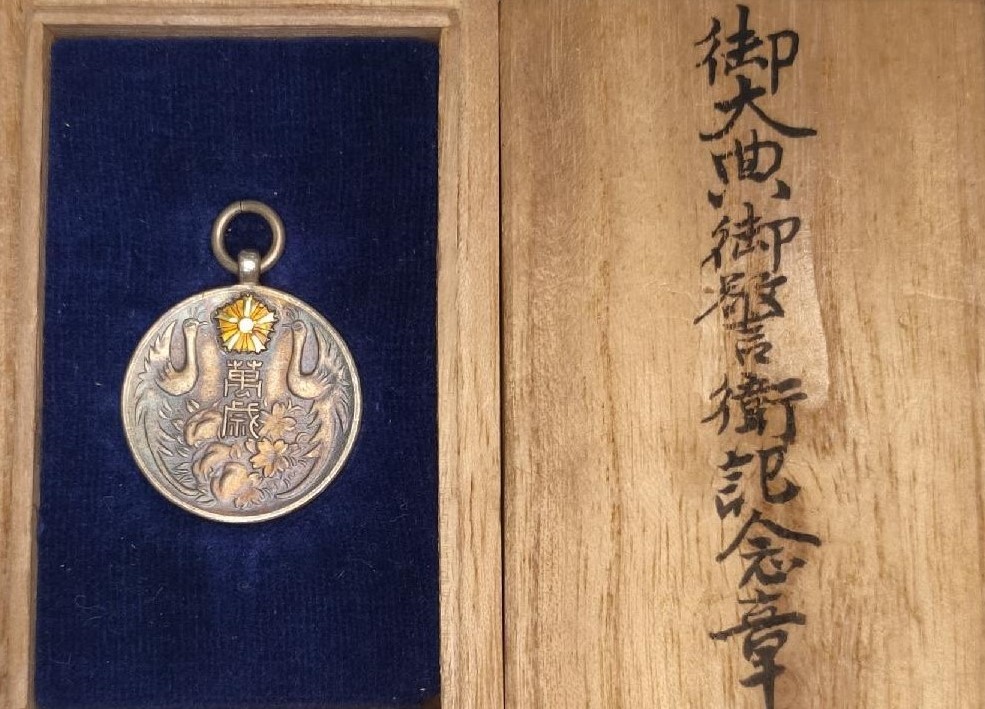 萬歳
御大典御警衛記念章